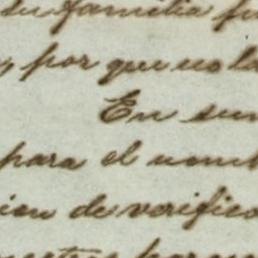 su familia fu
, por que no la
En sum
para el nomb
ion de verifica